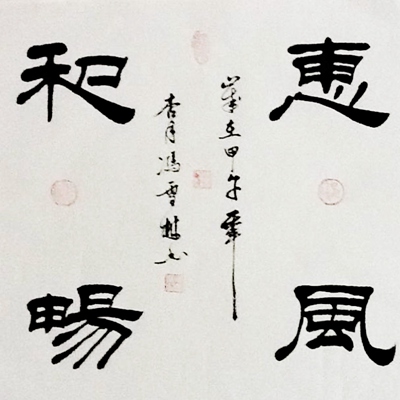 惠風
和暢
歲在甲午年
杏月馮雪书